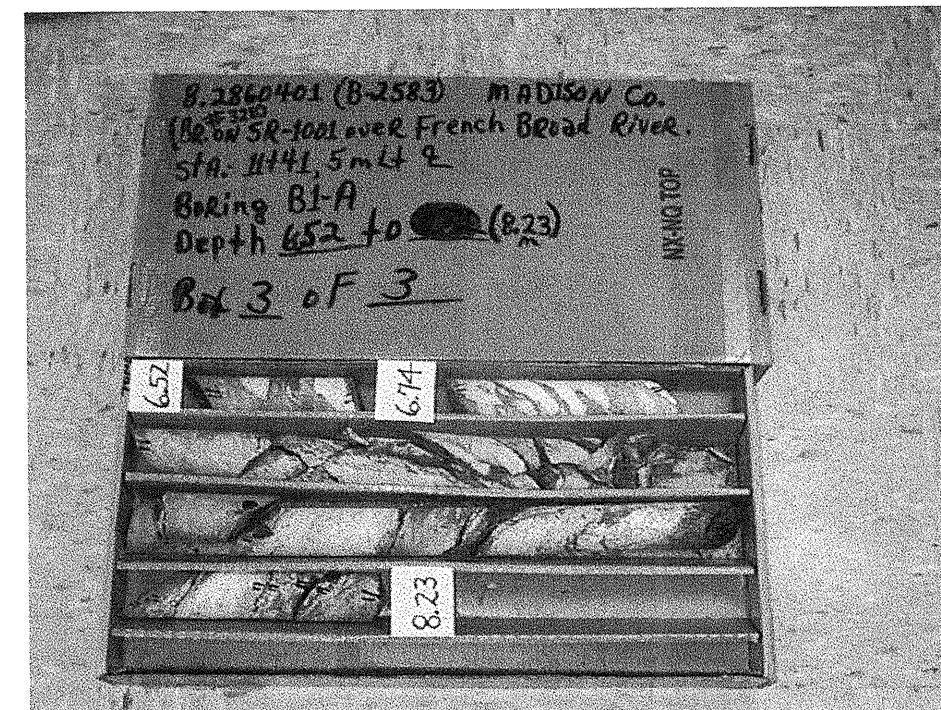 8.2860401 (B-2583) MADISON Co.
(BR. ON SR-1001 over French Broad River.
StA. 11+41, 5m Lt
Boring B1-A
Depth 6.52 to (8.23)
m
Box 3 oF 3
NX-NQ TOP
6.52
6.74
8.23